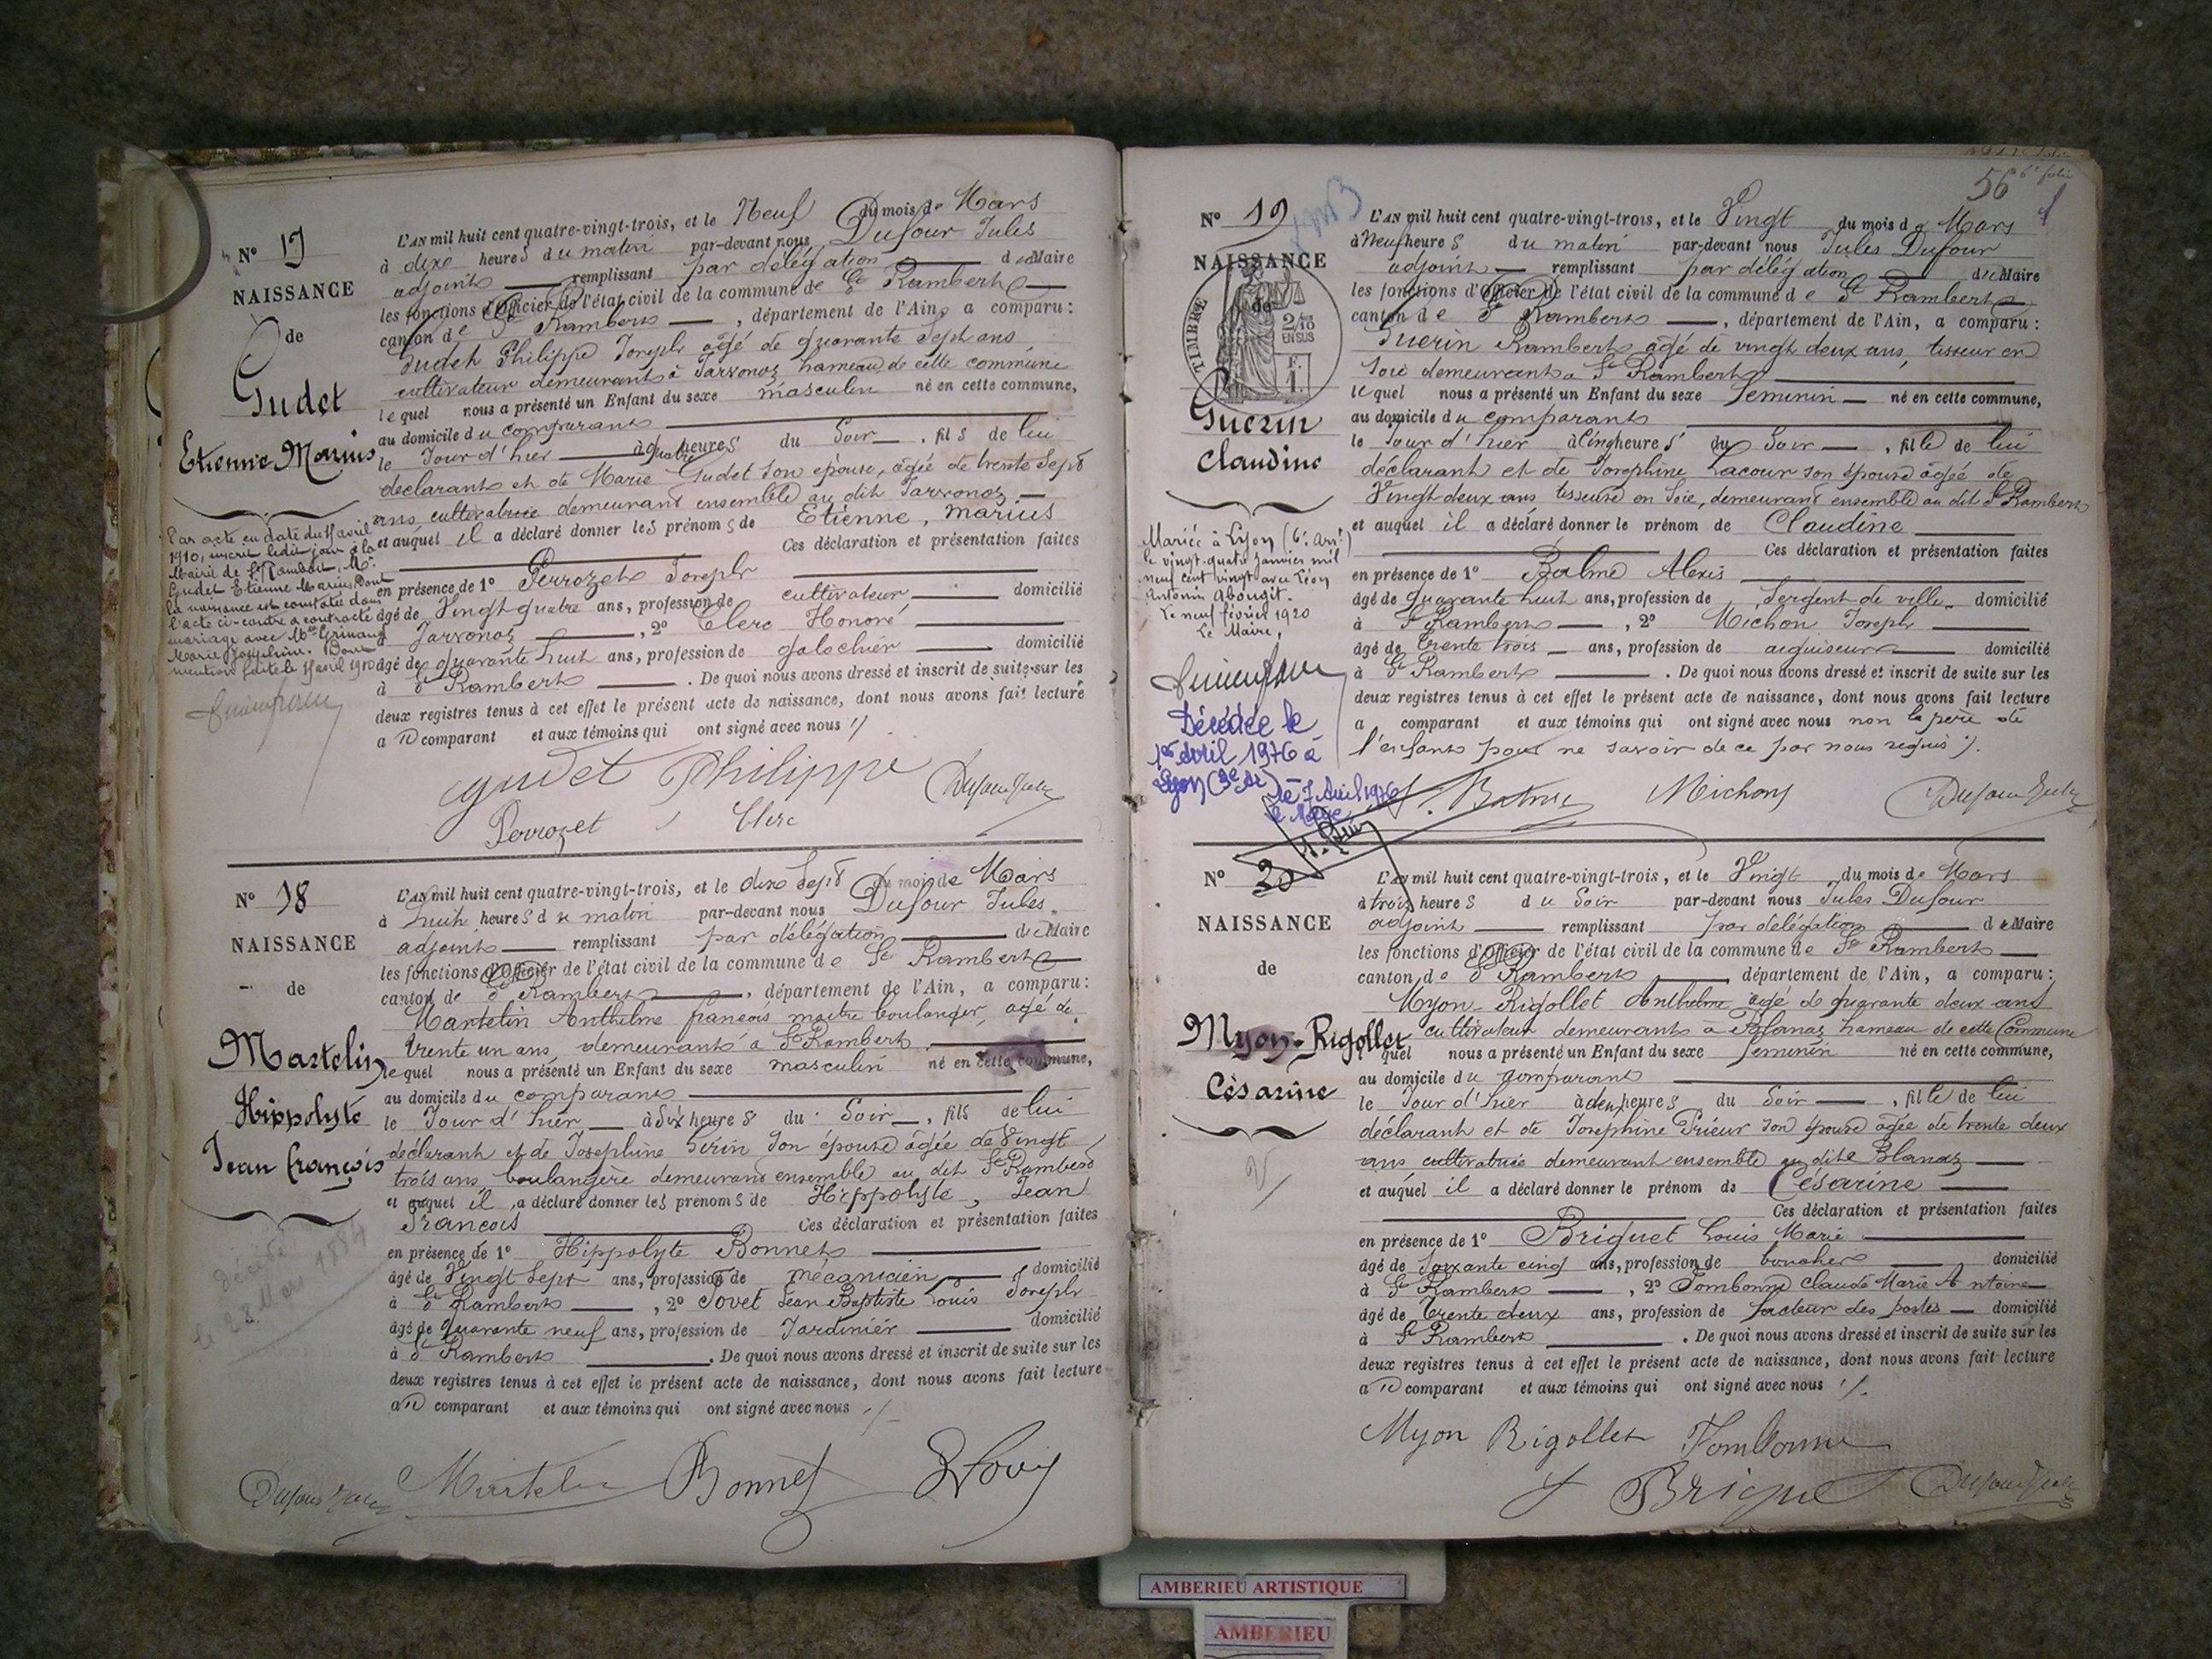 N° 17
NAISSANCE
de
Gudet
Etienne Marius
Par acte en date du 11 avril
1910, inscrit ledit jour à la
Mairie de St Rambert, Mr
Gudet Etienne Marius dont
la naissance est constatée dans
l'acte ci-contre a contracté
mariage avec Melle
Marie Joséphine. Dont
mention faite le 11 avril 1910
L'AN mil huit cent quatre-vingt-trois, et le Neuf du mois de Mars
à dix heures du matin par-devant nous Dufour Jules
adjoint remplissant par délégation du Maire
les fonctions d'Officier de l'état civil de la commune de St Rambert
canton de St Rambert, département de l'Ain, a comparu:
Gudet Philippe Joseph âgé de quarante sept ans
cultivateur demeurant à Javornoz hameau de cette commune
lequel nous a présenté un Enfant du sexe masculin né en cette commune,
au domicile du comparant
le Jour d'hier à quatre heures du Soir, fils de lui
déclarant et de Marie Gudet son épouse, âgée de trente sept
ans, cultivatrice demeurant ensemble au dit Javornoz
et auquel il a déclaré donner les prénoms de Etienne, Marius
Ces déclaration et présentation faites
en présence de 1° Perrozet Joseph
âgé de Vingt quatre ans, profession de cultivateur domicilié
à Javornoz, 2° Clerc Honoré
âgé de quarante huit ans, profession de galochier domicilié
à St Rambert. De quoi nous avons dressé et inscrit de suite sur les
deux registres tenus à cet effet le présent acte de naissance, dont nous avons fait lecture
au comparant et aux témoins qui ont signé avec nous
gudet Philippe Dufour Jules
Perrozet Clerc
N° 18
NAISSANCE
de
Martelin
Hippolyte
Jean françois
Décédé
le 28 Mars 1884
L'AN mil huit cent quatre-vingt-trois, et le dix Sept du mois de Mars
à huit heures du matin par-devant nous Dufour Jules
adjoint remplissant par délégation du Maire
les fonctions d'Officier de l'état civil de la commune de St Rambert
canton de St Rambert, département de l'Ain, a comparu:
Martelin Anthelme françois maître boulanger, âgé de
trente un ans, demeurant à St Rambert
lequel nous a présenté un Enfant du sexe masculin né en cette commune,
au domicile du comparant
le Jour d'hier à dix heures du Soir, fils de lui
déclarant et de Josephine son épouse âgée de Vingt
trois ans, boulangère demeurant ensemble au dit St Rambert
et auquel il a déclaré donner les prénoms de Hippolyte, Jean
François Ces déclaration et présentation faites
en présence de 1° Hippolyte Bonnet
âgé de Vingt Sept ans, profession de mécanicien domicilié
à St Rambert, 2° Jovet Jean Baptiste Louis Joseph
âgé de quarante neuf ans, profession de Jardinier domicilié
à St Rambert. De quoi nous avons dressé et inscrit de suite sur les
deux registres tenus à cet effet le présent acte de naissance, dont nous avons fait lecture
au comparant et aux témoins qui ont signé avec nous
Dufour Jules Martelin Bonnet
56
6e folio
N° 19
NAISSANCE
de
TIMBRE
2/10
EN SUS
F.
1.
Guerin
Claudine
Mariée à Lyon (6e Arrt)
le vingt-quatre janvier mil
neuf cent vingt avec Léon
Antonin Abougit.
Le neuf février 1920
Le Maire,
Décédée le
1er avril 1976 à
Lyon (3e Ar)
le 7 Avril 1976
le Maire,
L'AN mil huit cent quatre-vingt-trois, et le Vingt du mois de Mars
à Neuf heures du matin par-devant nous Jules Dufour
adjoint remplissant par délégation du Maire
les fonctions d'Officier de l'état civil de la commune de St Rambert
canton de St Rambert, département de l'Ain, a comparu:
Guerin Rambert âgé de vingt deux ans, tisseur en
Soie demeurant à St Rambert
lequel nous a présenté un Enfant du sexe feminin né en cette commune,
au domicile du comparant
le Jour d'hier à cinq heures du Soir, fille de lui
déclarant et de Josephine Lacour son épouse âgée de
Vingt deux ans tisseuse en Soie, demeurant ensemble au dit St Rambert
et auquel il a déclaré donner le prénom de Claudine
Ces déclaration et présentation faites
en présence de 1° Balme Alexis
âgé de quarante huit ans, profession de Sergent de ville domicilié
à St Rambert, 2° Michon Joseph
âgé de trente trois ans, profession de aiguiseur domicilié
à St Rambert. De quoi nous avons dressé et inscrit de suite sur les
deux registres tenus à cet effet le présent acte de naissance, dont nous avons fait lecture
a comparant et aux témoins qui ont signé avec nous non le père de
l'enfant pour ne savoir de ce par nous requis
Balme Michon Dufour Jules
N° 20
NAISSANCE
de
Myon-Rigollet
Césarine
L'AN mil huit cent quatre-vingt-trois, et le Vingt du mois de Mars
à trois heures du Soir par-devant nous Jules Dufour
adjoint remplissant par délégation du Maire
les fonctions d'Officier de l'état civil de la commune de St Rambert
canton de St Rambert département de l'Ain, a comparu:
Myon-Rigollet Anthelme âgé de quarante deux ans
cultivateur demeurant à Blanaz hameau de cette Commune
lequel nous a présenté un Enfant du sexe feminin né en cette commune,
au domicile du comparant
le Jour d'hier à deux heures du Soir, fille de lui
déclarant et de Josephine Prieur son épouse âgée de trente deux
ans cultivatrice demeurant ensemble au dit Blanaz
et auquel il a déclaré donner le prénom de Césarine
Ces déclaration et présentation faites
en présence de 1° Briquet Louis Marie
âgé de Soixante cinq ans, profession de boucher domicilié
à St Rambert, 2° Tombonne Claude Marie Antoine
âgé de trente deux ans, profession de facteur des postes domicilié
à St Rambert. De quoi nous avons dressé et inscrit de suite sur les
deux registres tenus à cet effet le présent acte de naissance, dont nous avons fait lecture
au comparant et aux témoins qui ont signé avec nous
Myon Rigollet Tombonne
Briquet Dufour Jules
AMBERIEU ARTISTIQUE
AMBERIEU